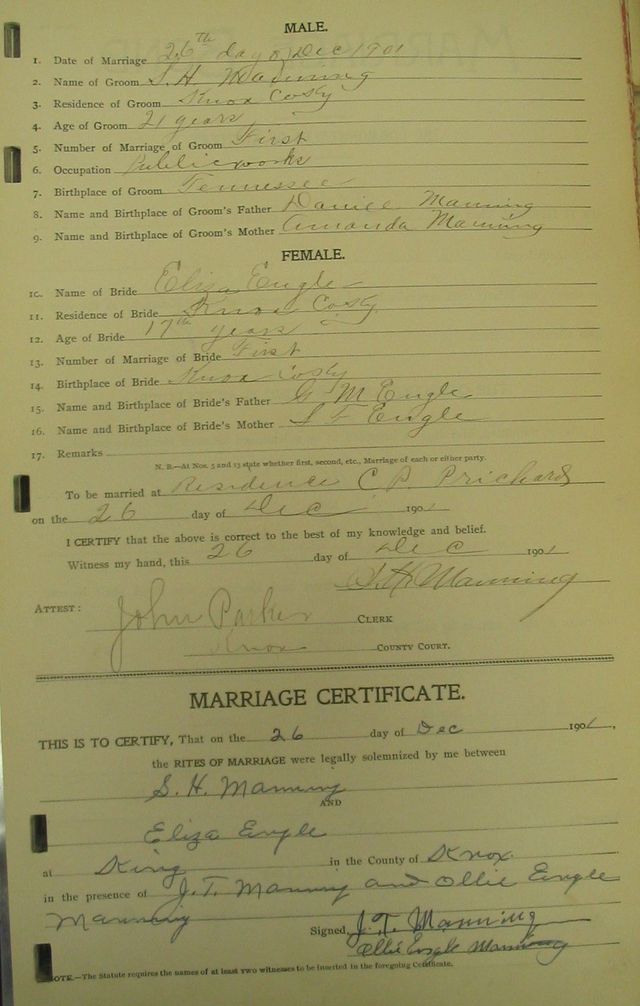 MALE.
1. Date of Marriage 26th day of Dec 1901
2. Name of Groom S. H Manning
3. Residence of Groom Knox Co Ky
4. Age of Groom 21 years
5. Number of Marriage of Groom First
6. Occupation Public works
7. Birthplace of Groom Tennessee
8. Name and Birthplace of Groom's Father Manning
9. Name and Birthplace of Groom's Mother Amanda Manning
FEMALE.
10. Name of Bride Eliza Engle
11. Residence of Bride Knox Co Ky
12. Age of Bride 17th years
13. Number of Marriage of Bride First
14. Birthplace of Bride Knox Co Ky
15. Name and Birthplace of Bride's Father G M Engle
16. Name and Birthplace of Bride's Mother S F Engle
17. Remarks
N. B.—At Nos. 5 and 13 state whether first, second, etc., Marriage of each or either party.
To be married at Residence C P. Prichard
on the 26 day of Dec 1901
I CERTIFY that the above is correct to the best of my knowledge and belief.
Witness my hand, this 26 day of Dec 1901
S. H. Manning
ATTEST: John Parker CLERK
Knox COUNTY COURT.
MARRIAGE CERTIFICATE.
THIS IS TO CERTIFY, That on the 26 day of Dec 1901,
the RITES OF MARRIAGE were legally solemnized by me between
S. H. Manning
AND
Eliza Engle
at King in the County of Knox
in the presence of J. T. Manning and Ollie Engle
Manning Signed, J. T. Manning
Ollie Engle Manning
NOTE.—The Statute requires the names of at least two witnesses to be inserted in the foregoing Certificate.